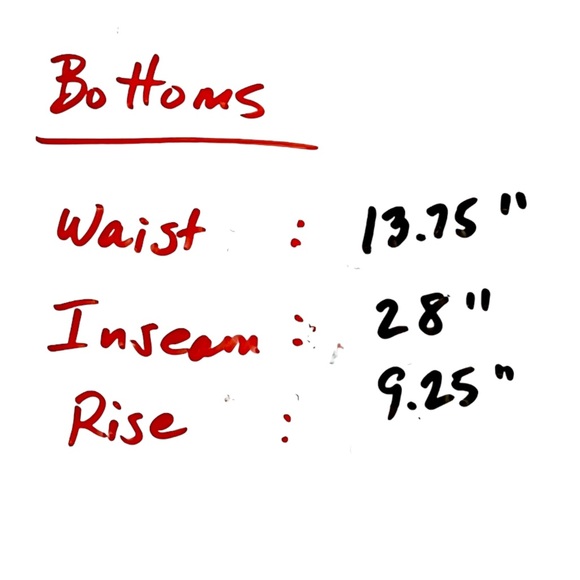 Bottoms
Waist : 13.75"
Inseam : 28"
Rise : 9.25"